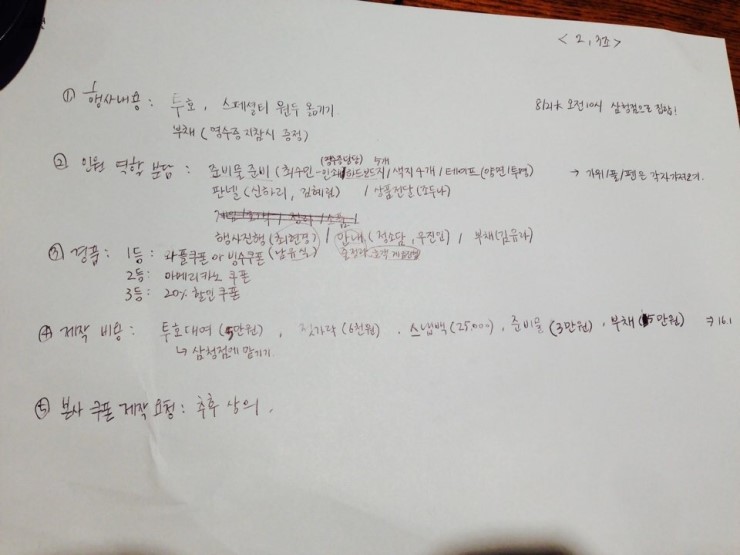 < 2, 3조 >
① 행사내용 : 투호, 스페셜티 원두 옮기기
8/21 오전 10시 삼청점으로 집합!
부채 (영수증 지참시 증정)
(영수증담당) 5개
② 인원 역할 분담 : 준비물 준비 (최수민 - 인쇄 / 하드보드지 / 색지 4개 / 테이프 (양면/투명) → 가위/풀/펜은 각자 가져오기.
판넬 (신하리, 김혜림) / 상품전달 (조두나)
행사진행 (최현경) / 안내 (정소담, 우진임) / 부채 (김유라)
③ 경품 : 1등 : 와플쿠폰 or 빙수쿠폰 (남유실)
2등 : 아메리카노 쿠폰
3등 : 20% 할인 쿠폰
④ 제작 비용 : 투호대여 (5만원), 젓가락 (6천원), 스냅백 (25,000), 준비물 (3만원), 부채 (5만원) ⇒ 16.1
↳ 삼청점에 맡기기
⑤ 본사 쿠폰 제작 요청 : 추후 상의.